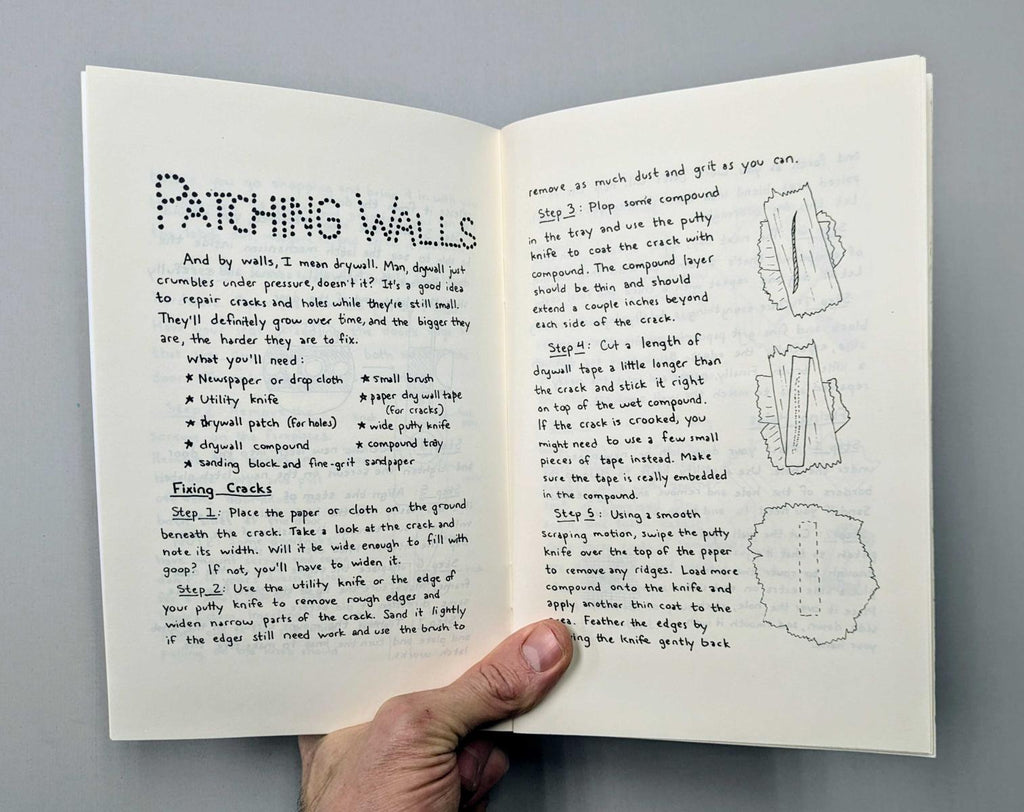 PATCHING WALLS
And by walls, I mean drywall. Man, drywall just
crumbles under pressure, doesn't it? It's a good idea
to repair cracks and holes while they're still small.
They'll definitely grow over time, and the bigger they
are, the harder they are to fix.
What you'll need:
★ Newspaper or drop cloth ★ small brush
★ Utility knife ★ paper dry wall tape
(for cracks)
★ drywall patch (for holes) ★ wide putty knife
★ drywall compound ★ compound tray
★ sanding block and fine-grit sandpaper
Fixing Cracks
Step 1: Place the paper or cloth on the ground
beneath the crack. Take a look at the crack and
note its width. Will it be wide enough to fill with
goop? If not, you'll have to widen it.
Step 2: Use the utility knife or the edge of
your putty knife to remove rough edges and
widen narrow parts of the crack. Sand it lightly
if the edges still need work and use the brush to
remove as much dust and grit as you can.
Step 3: Plop some compound
in the tray and use the putty
knife to coat the crack with
compound. The compound layer
should be thin and should
extend a couple inches beyond
each side of the crack.
Step 4: Cut a length of
drywall tape a little longer than
the crack and stick it right
on top of the wet compound.
If the crack is crooked, you
might need to use a few small
pieces of tape instead. Make
sure the tape is really embedded
in the compound.
Step 5: Using a smooth
scraping motion, swipe the putty
knife over the top of the paper
to remove any ridges. Load more
compound onto the knife and
apply another thin coat to the
Feather the edges by
the knife gently back